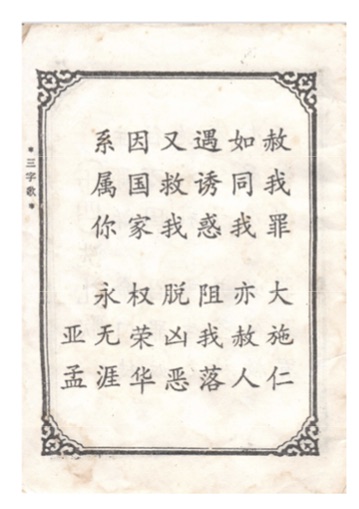 赦我罪 大施仁
如同我 亦赦人
遇诱惑 阻我落
又救我 脱凶恶
因国家 权荣华
系属你 永无涯
亚孟
*三字歌*